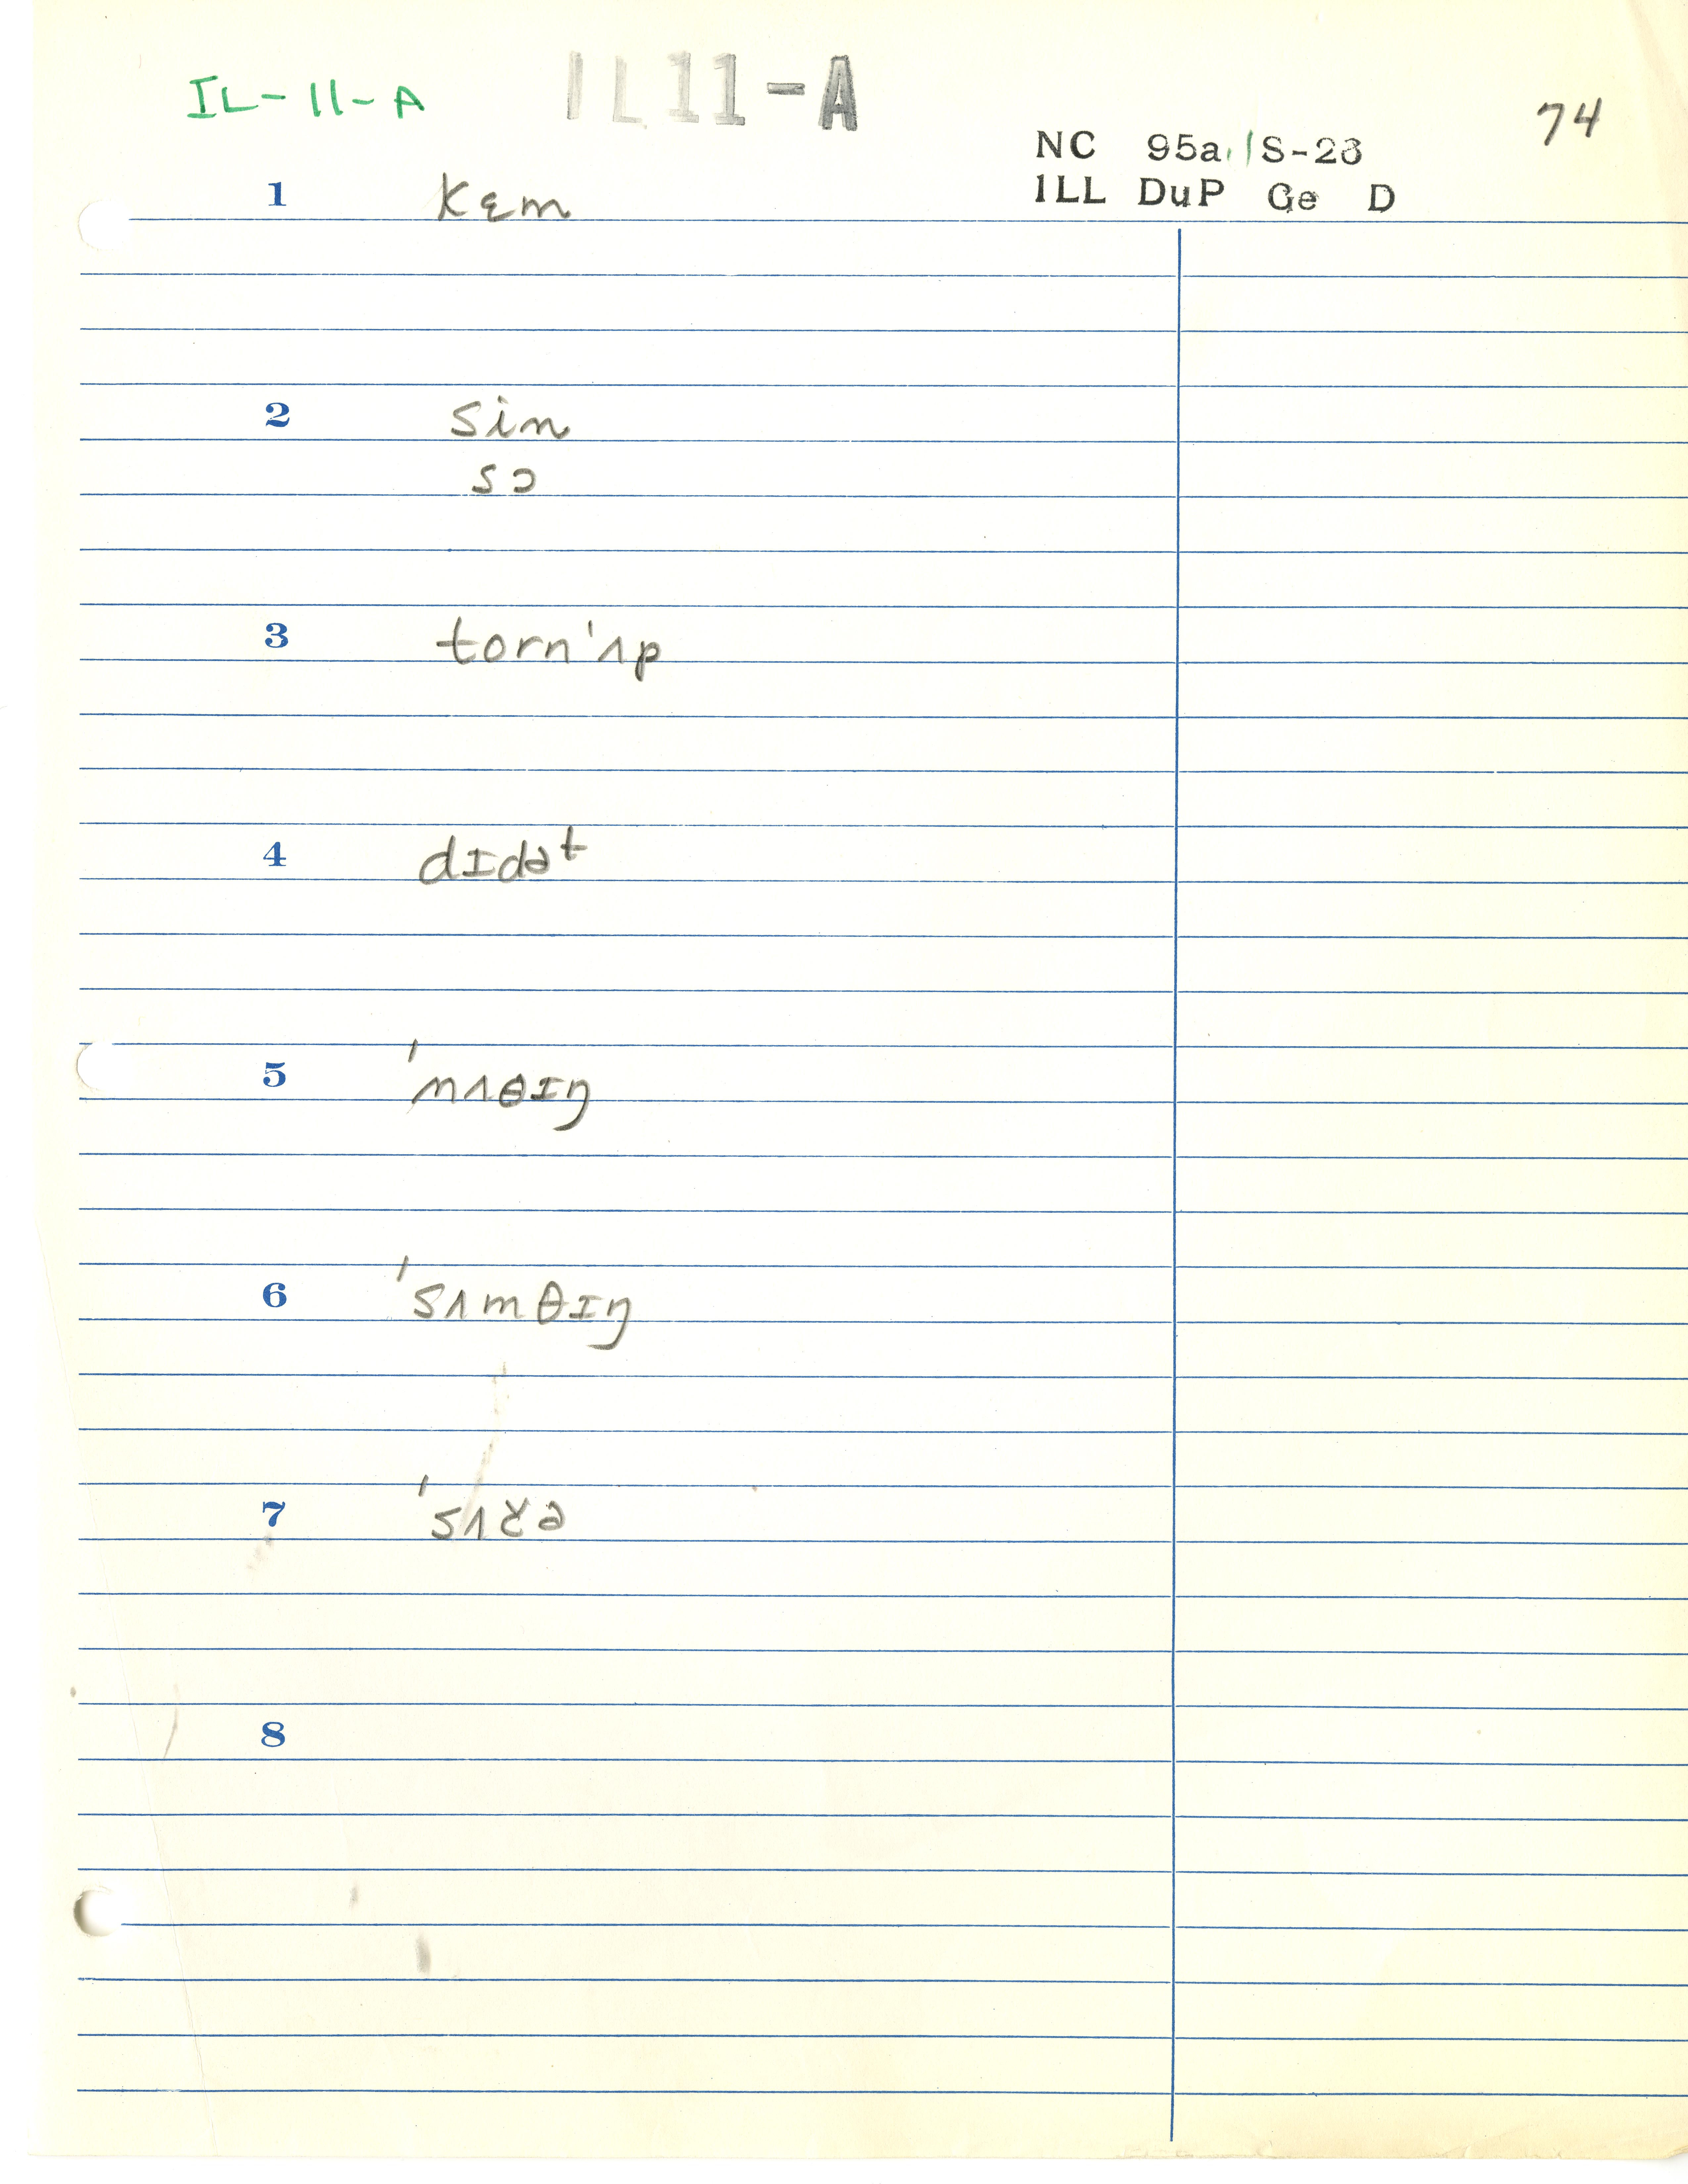 IL-11-A IL11-A
74
NC 95a/S-23
ILL DuP Ge D
1 kɛm
2 sin
sɔ
3 torn'ʌp
4 dɪdət
5 'nʌθɪŋ
6 'sʌmθɪŋ
7 'sʌč̣ə
8